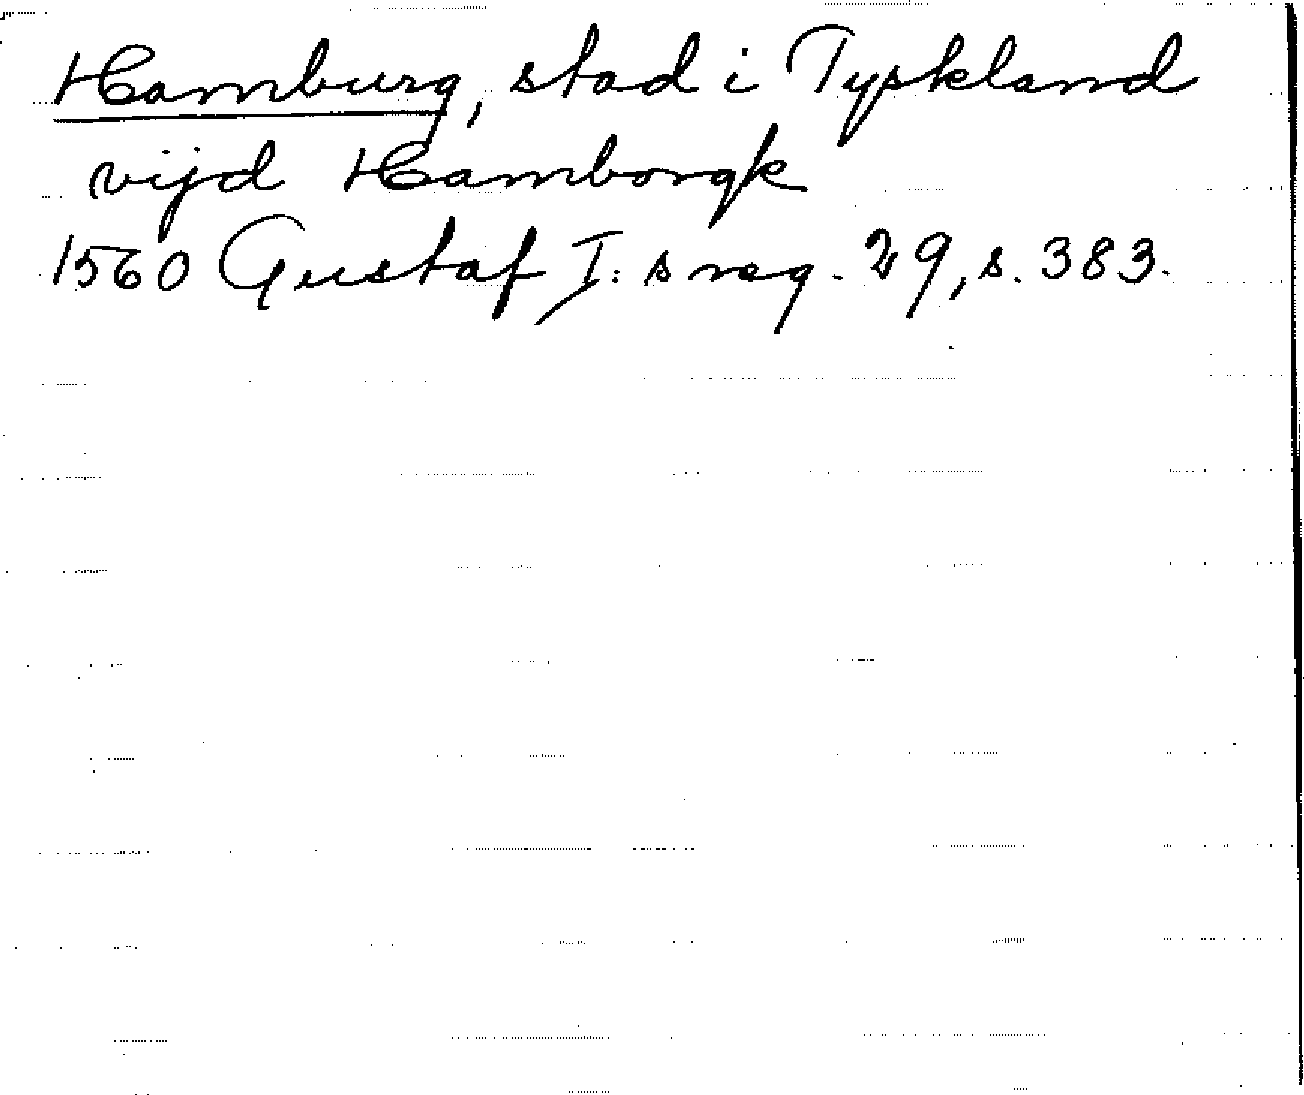 Hamburg, stad i Tyskland
vijd Hamborgk
1560 Gustaf I:s reg. 29, s. 383.